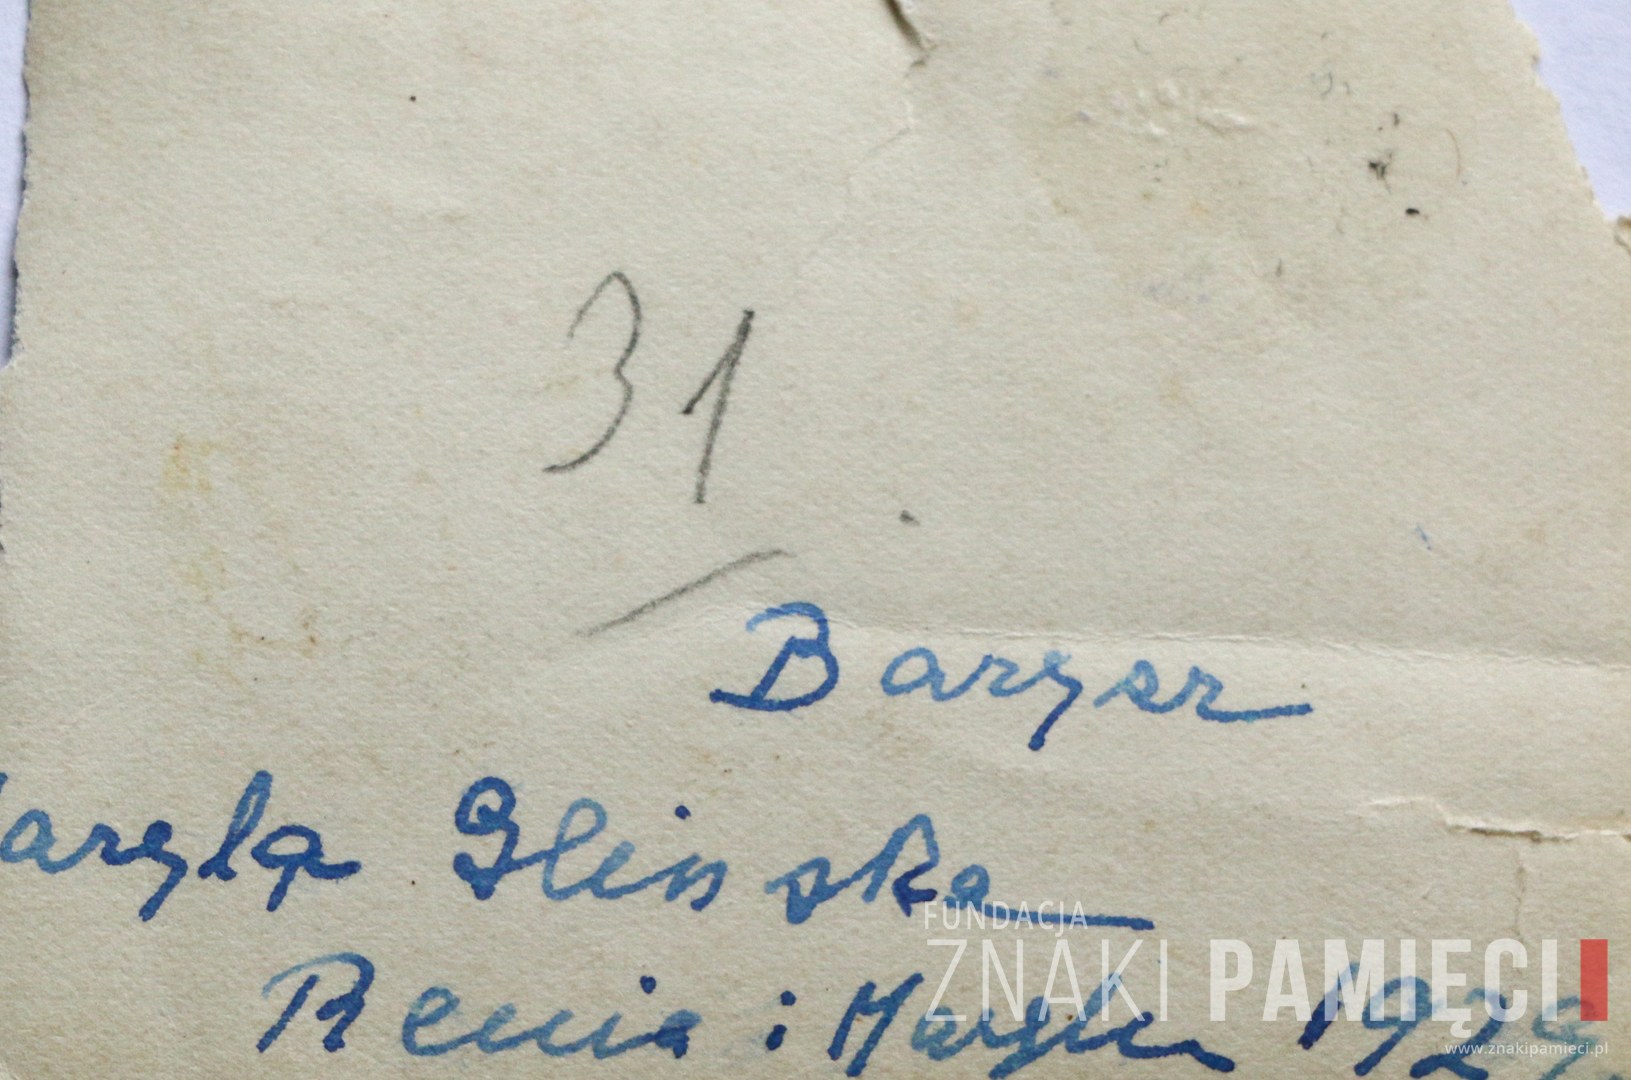 31
Barysz
Maryla Glinska
Renia i Maryla 1929
FUNDACJA
ZNAKI PAMIĘCI
www.znakipamieci.pl